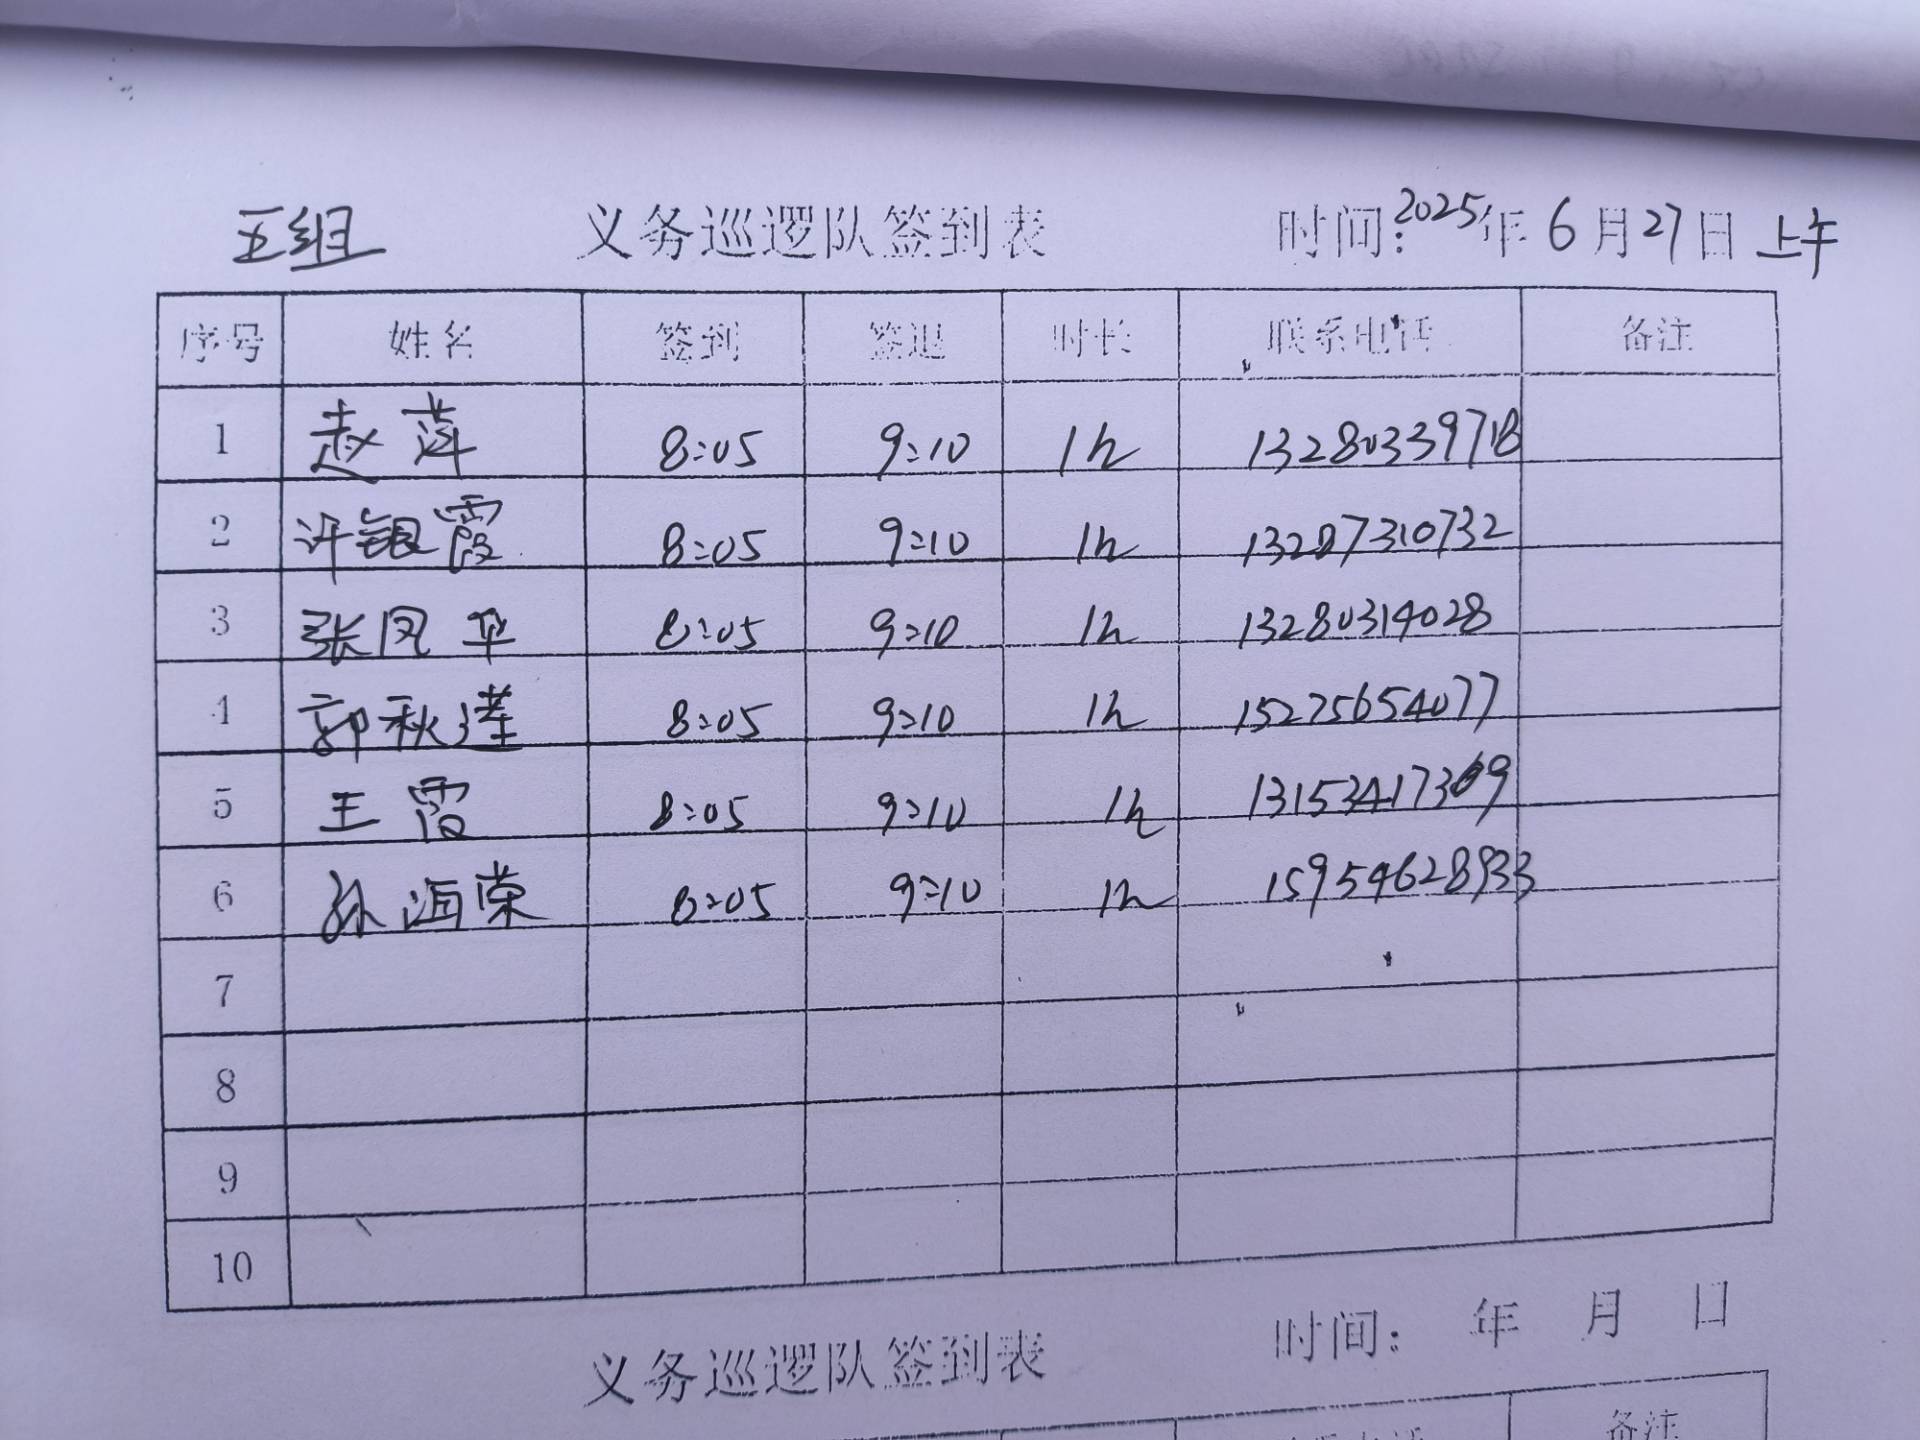 五组 义务巡逻队签到表 时间:2025年6月27日上午
序号 姓名 签到 签退 时长 联系电话 备注
1 赵萍 8:05 9:10 1h 13280339718
2 许银霞 8:05 9:10 1h 13287310732
3 张凤平 8:05 9:10 1h 13280314028
4 郭秋莲 8:05 9:10 1h 15275654077
5 王霞 8:05 9:10 1h 13153417369
6 孙海荣 8:05 9:10 1h 15954628933
7
8
9
10
义务巡逻队签到表 时间: 年 月 日
备注